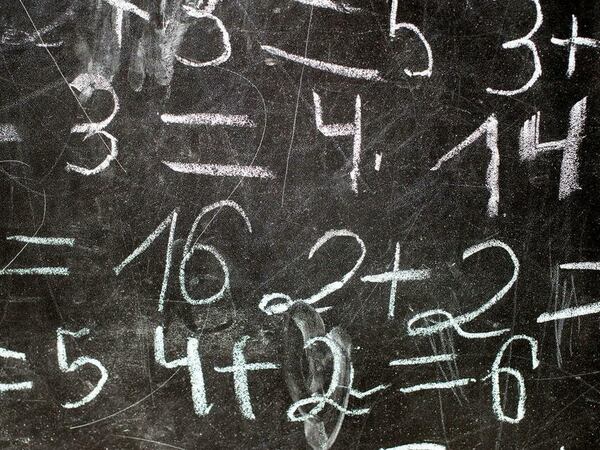 +3=5 3+
3=4. 14
=16 2+2=
=5 4+2=6